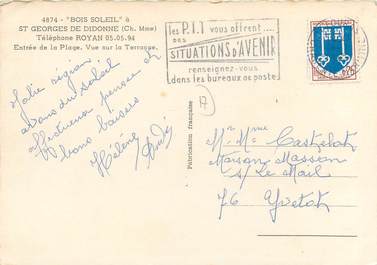 4874 - "BOIS SOLEIL" à
ST GEORGES DE DIDONNE (Ch. Mme)
Téléphone ROYAN 05.05.94
Entrée de la Plage. Vue sur la Terrasse.
les P.T.T vous offrent...
DES
SITUATIONS d'AVENIR
renseignez-vous
dans les bureaux de poste
Jolie région,
avons du soleil
affectueux pensées et
bons baisers
Hélène
André
17
Fabrication française
M. Me Castelot
Maison Masson
s/ le Mail
76 Yvetot